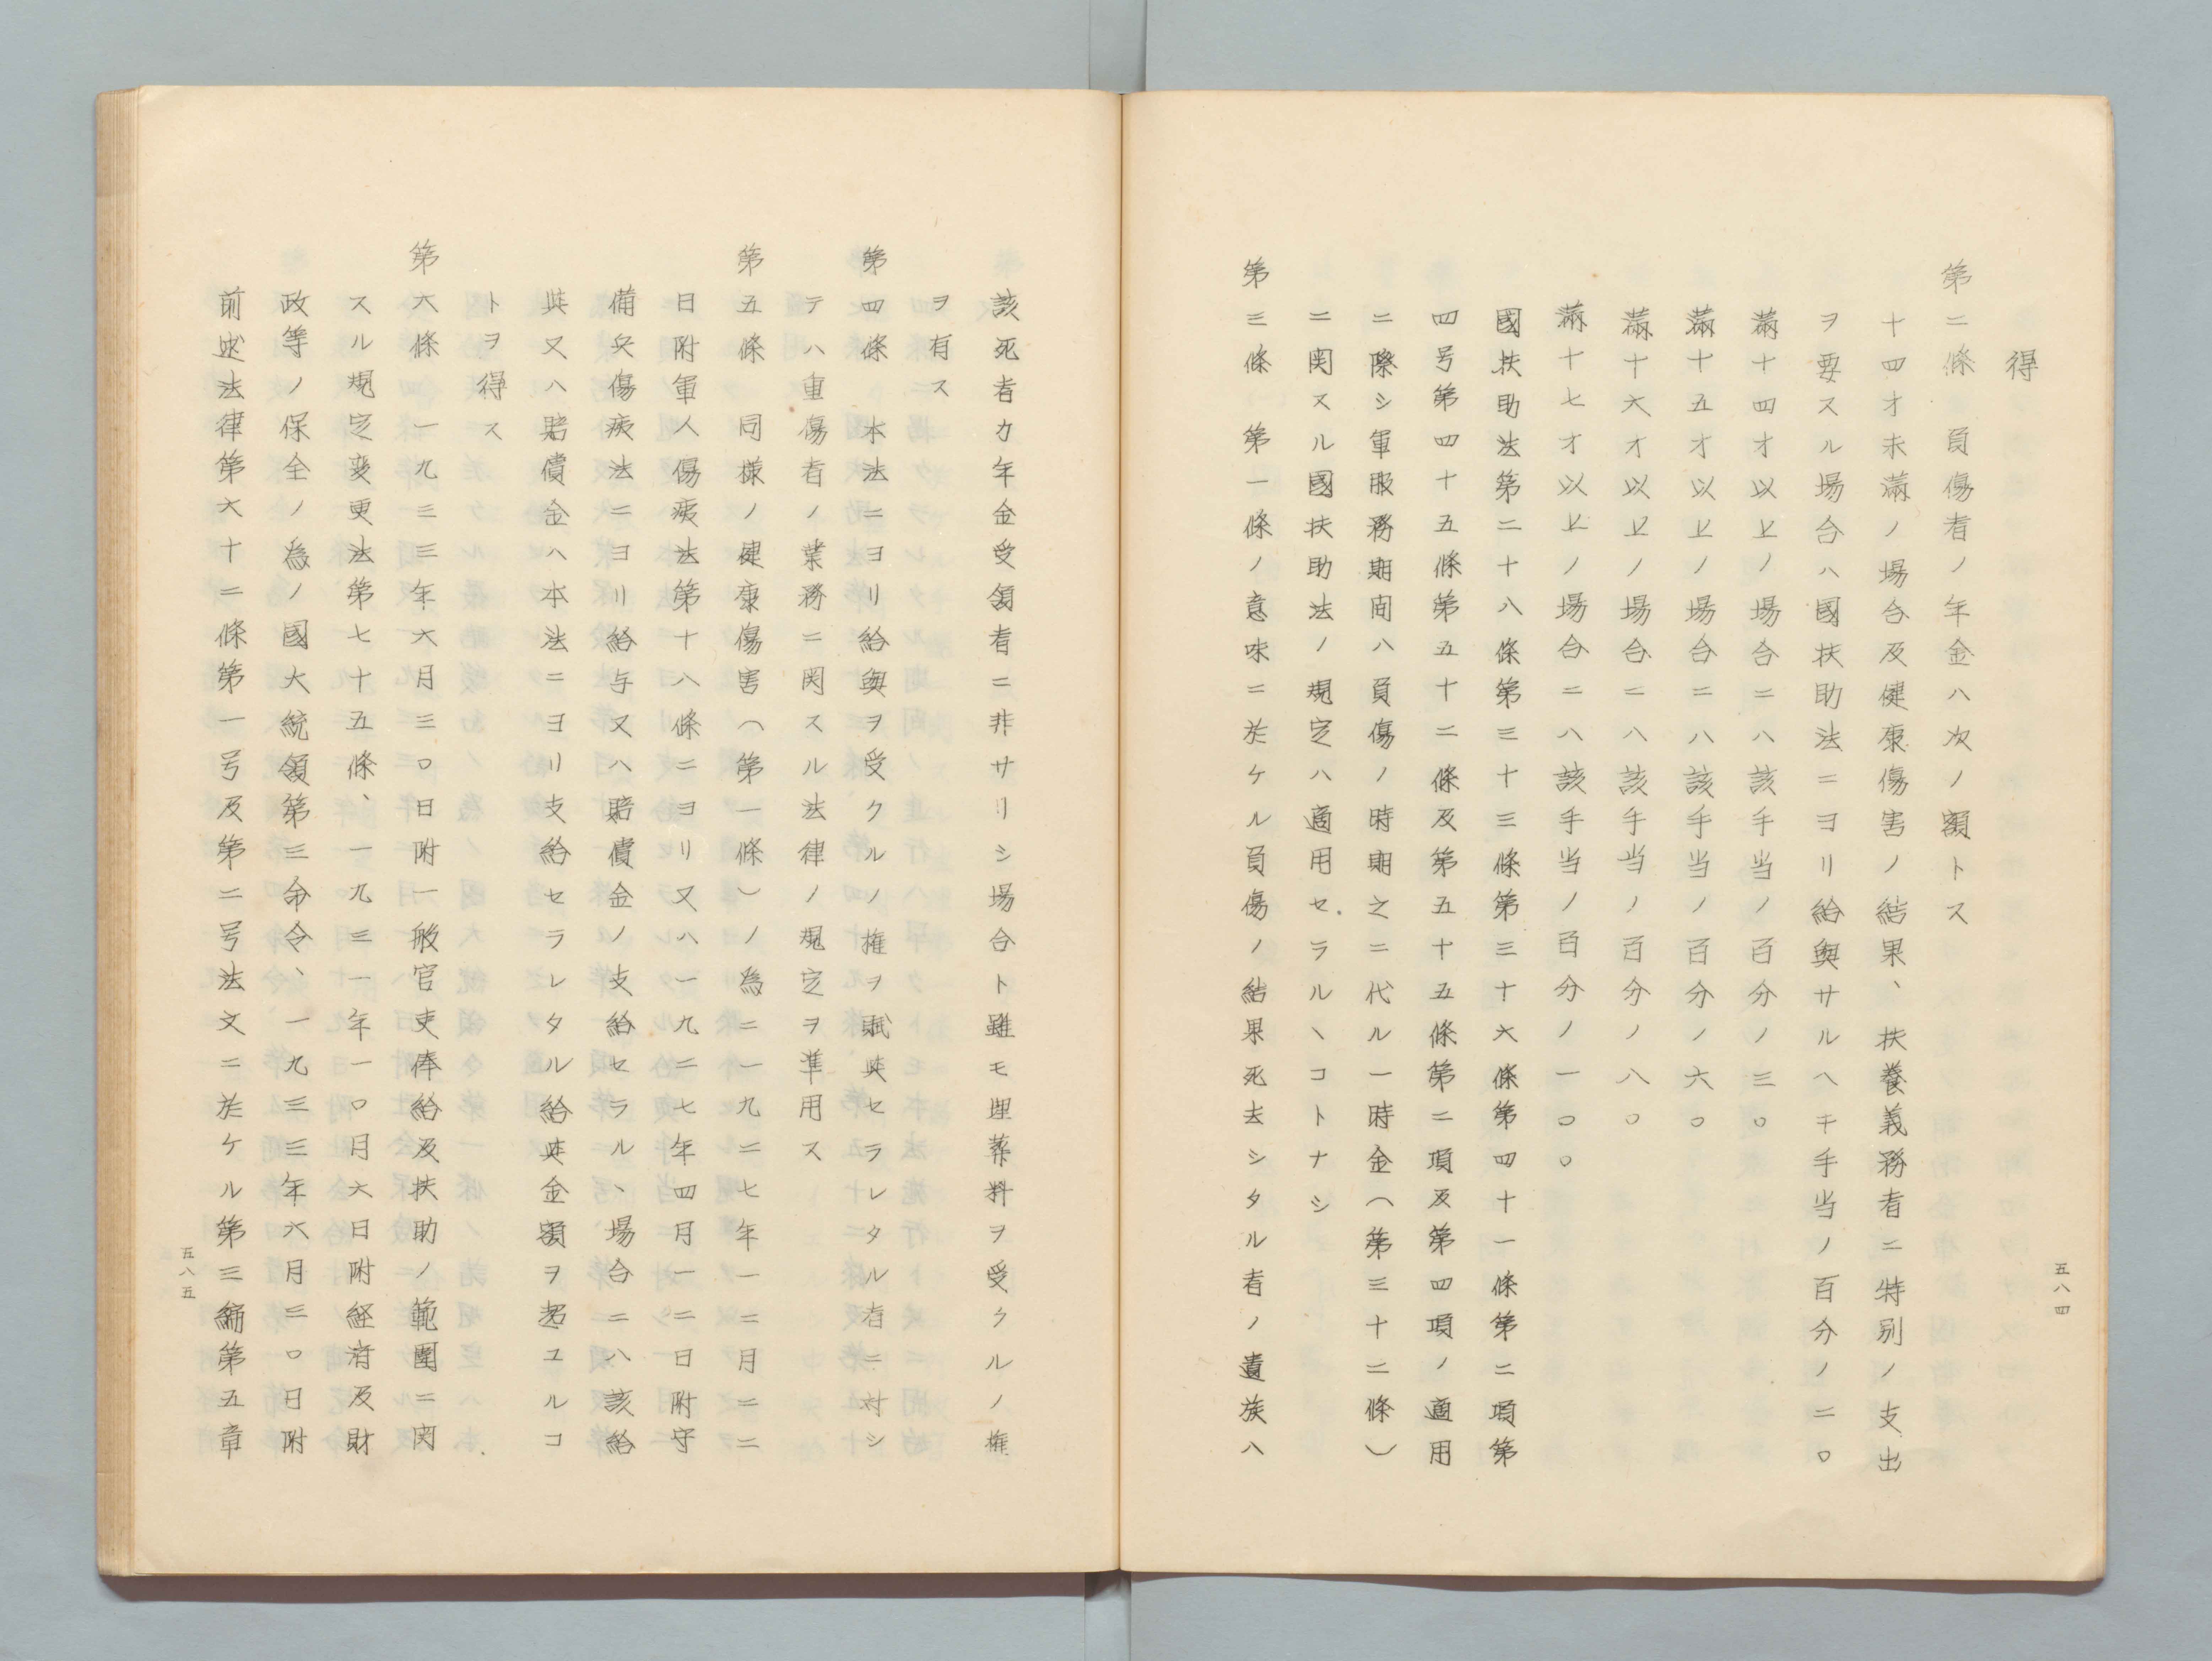 五八四
得
第二條　負傷者ノ年金ハ次ノ額トス
十四才未満ノ場合及健康傷害ノ結果、扶養義務者ニ特別ノ支出
ヲ要スル場合ハ國扶助法ニヨリ給與サルヘキ手当ノ百分ノ二〇
満十四才以上ノ場合ニハ該手当ノ百分ノ三〇
満十五才以上ノ場合ニハ該手当ノ百分ノ六〇
満十六才以上ノ場合ニハ該手当ノ百分ノ八〇
満十七才以上ノ場合ニハ該手当ノ百分ノ一〇〇
國扶助法第二十八條第三十三條第三十六條第四十一條第二項第
四号第四十五條第五十二條及第五十五條第二項及第四項ノ適用
ニ際シ軍服務期間ハ負傷ノ時期之ニ代ル一時金（第三十二條）
ニ関スル國扶助法ノ規定ハ適用セラルヽコトナシ
第三條　第一條ノ意味ニ於ケル負傷ノ結果死去シタル者ノ遺族ハ
該死者カ年金受領者ニ非サリシ場合ト雖モ埋葬料ヲ受クルノ権
ヲ有ス
第四條　本法ニヨリ給與ヲ受クルノ権ヲ賦與セラレタル者ニ対シ
テハ重傷者ノ業務ニ関スル法律ノ規定ヲ準用ス
第五條　同様ノ健康傷害（第一條）ノ為ニ一九二七年一二月二二
日附軍人傷痍法第十八條ニヨリ又ハ一九二七年四月一二日附守
備兵傷痍法ニヨリ給与又ハ賠償金ノ支給セラルヽ場合ニハ該給
與又ハ賠償金ハ本法ニヨリ支給セラレタル給與金額ヲ超ユルコ
トヲ得ス
第六條　一九三三年六月三〇日附一般官吏俸給及扶助ノ範圍ニ関
スル規定変更法第七十五條、一九三一年一〇月六日附経済及財
政等ノ保全ノ為ノ國大統領第三命令、一九三三年六月三〇日附
前述法律第六十二條第一号及第二号法文ニ於ケル第三編第五章
五八五